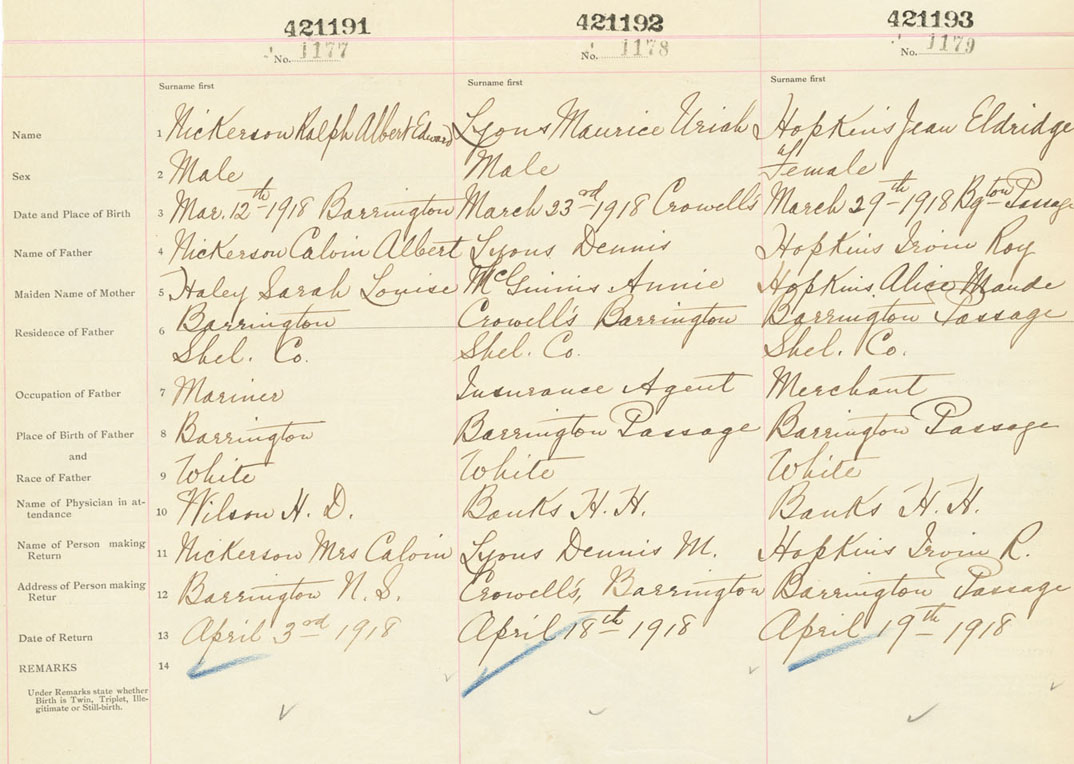 421191 421192 421193
No. 1177 No. 1178 No. 1179
Surname first Surname first Surname first
Name 1 Nickerson Ralph Albert Edward Lyons Maurice Uriah Hopkins Jean Eldridge
Sex 2 Male Male Female
Date and Place of Birth 3 Mar. 12th 1918 Barrington March 23rd 1918 Crowell's March 29th 1918 Bgton Passage
Name of Father 4 Nickerson Calvin Albert Lyons Dennis Hopkins Irvin Roy
Maiden Name of Mother 5 Haley Sarah Louise McGinnis Annie Hopkins Alice Maude
Residence of Father 6 Barrington Crowell's Barrington Barrington Passage
Shel. Co. Shel. Co. Shel. Co.
Occupation of Father 7 Mariner Insurance Agent Merchant
Place of Birth of Father 8 Barrington Barrington Passage Barrington Passage
and
Race of Father 9 White White White
Name of Physician in at-
tendance 10 Wilson H. D. Banks H. H. Banks H. H.
Name of Person making
Return 11 Nickerson Mrs Calvin Lyons Dennis M. Hopkins Irvin R.
Address of Person making
Retur 12 Barrington N. S. Crowell's, Barrington Barrington Passage
Date of Return 13 April 3rd 1918 April 18th 1918 April 19th 1918
REMARKS 14
Under Remarks state whether
Birth is Twin, Triplet, Ille-
gitimate or Still-birth.